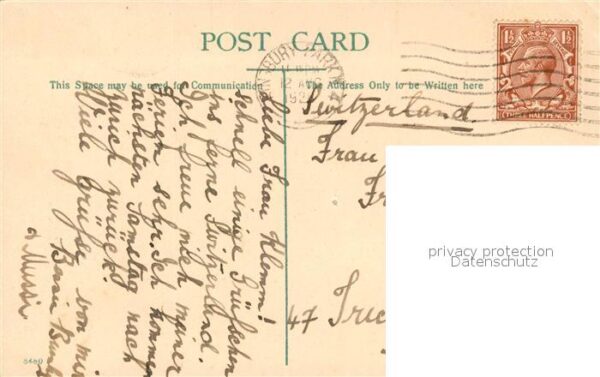 POST CARD
BURY PARK
12 AUG
This Space may be used for Communication
The Address Only to be Written here
1½ 1½
THREE HALFPENCE
Switzerland.
Frau
Fr
47
privacy protection
Datenschutz
Liebe Frau Klemm!
schnell einige Grüsschen
ins ferne Switzerland.
Ich freue mich meiner
Ferien sehr. Ich komme
nächsten Samstag nach
Zürich zurück!
Viele Grüsse von